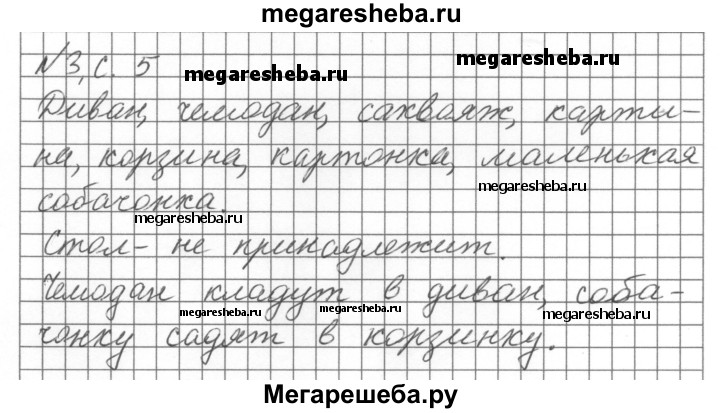 megaresheba.ru
№3, с. 5
megaresheba.ru
megaresheba.ru
Диван, чемодан, саквояж, карти-
на, корзина, картонка, маленькая
megaresheba.ru
собачонка.
megaresheba.ru
Стол - не принадлежит.
Чемодан кладут в диван, соба-
megaresheba.ru
megaresheba.ru
megaresheba.ru
чонку садят в корзинку.
Мегарешеба.ру